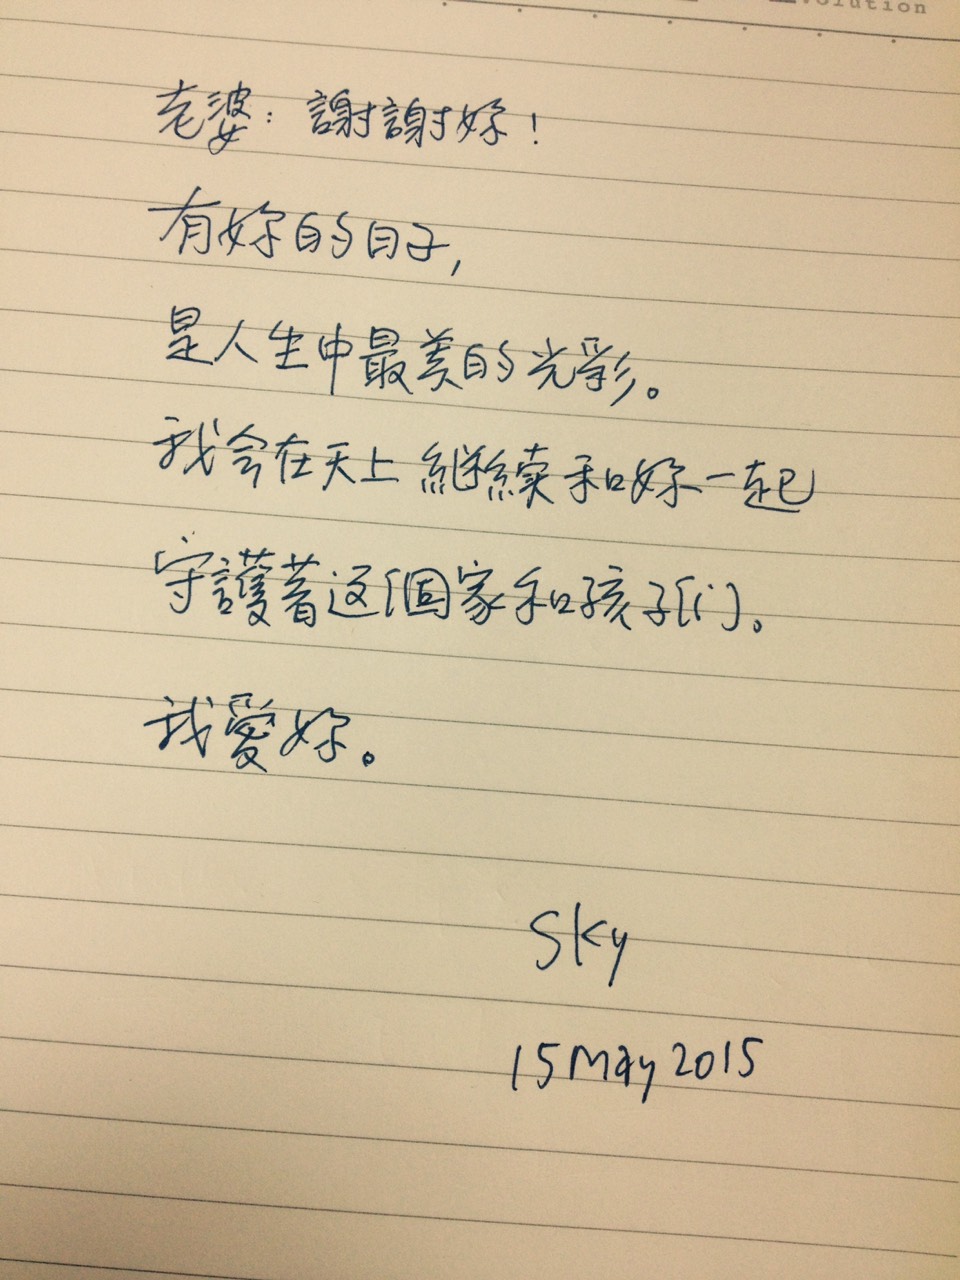 volution
老婆：謝謝妳！
有妳的日子，
是人生中最美的光影。
我会在天上繼續和妳一起
守護著这個家和孩子们。
我愛妳。
Sky
15 May 2015